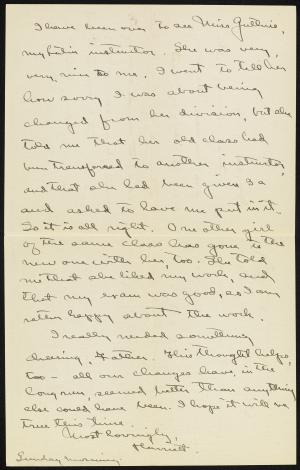 I have been over to see Miss Guthrie,
my Latin instructor. She was very,
very nice to me. I went to tell her
how sorry I was about being
changed from her division, but she
told me that her old class had
been transferred to another instructor,
and that she had been given 3 a
and asked to have me put in it.
So it is all right. One other girl
of the same class has gone in the
new one with her, too. She told
me that she liked my work, and
that my exam was good, so I am
rather happy about the work.
I really needed something
cheering, Father. This thought helps,
too – all our changes have, in the
long run, seemed better than anything
else could have been. I hope it will be
true this time.
Most lovingly,
Harriett.
Sunday morning.